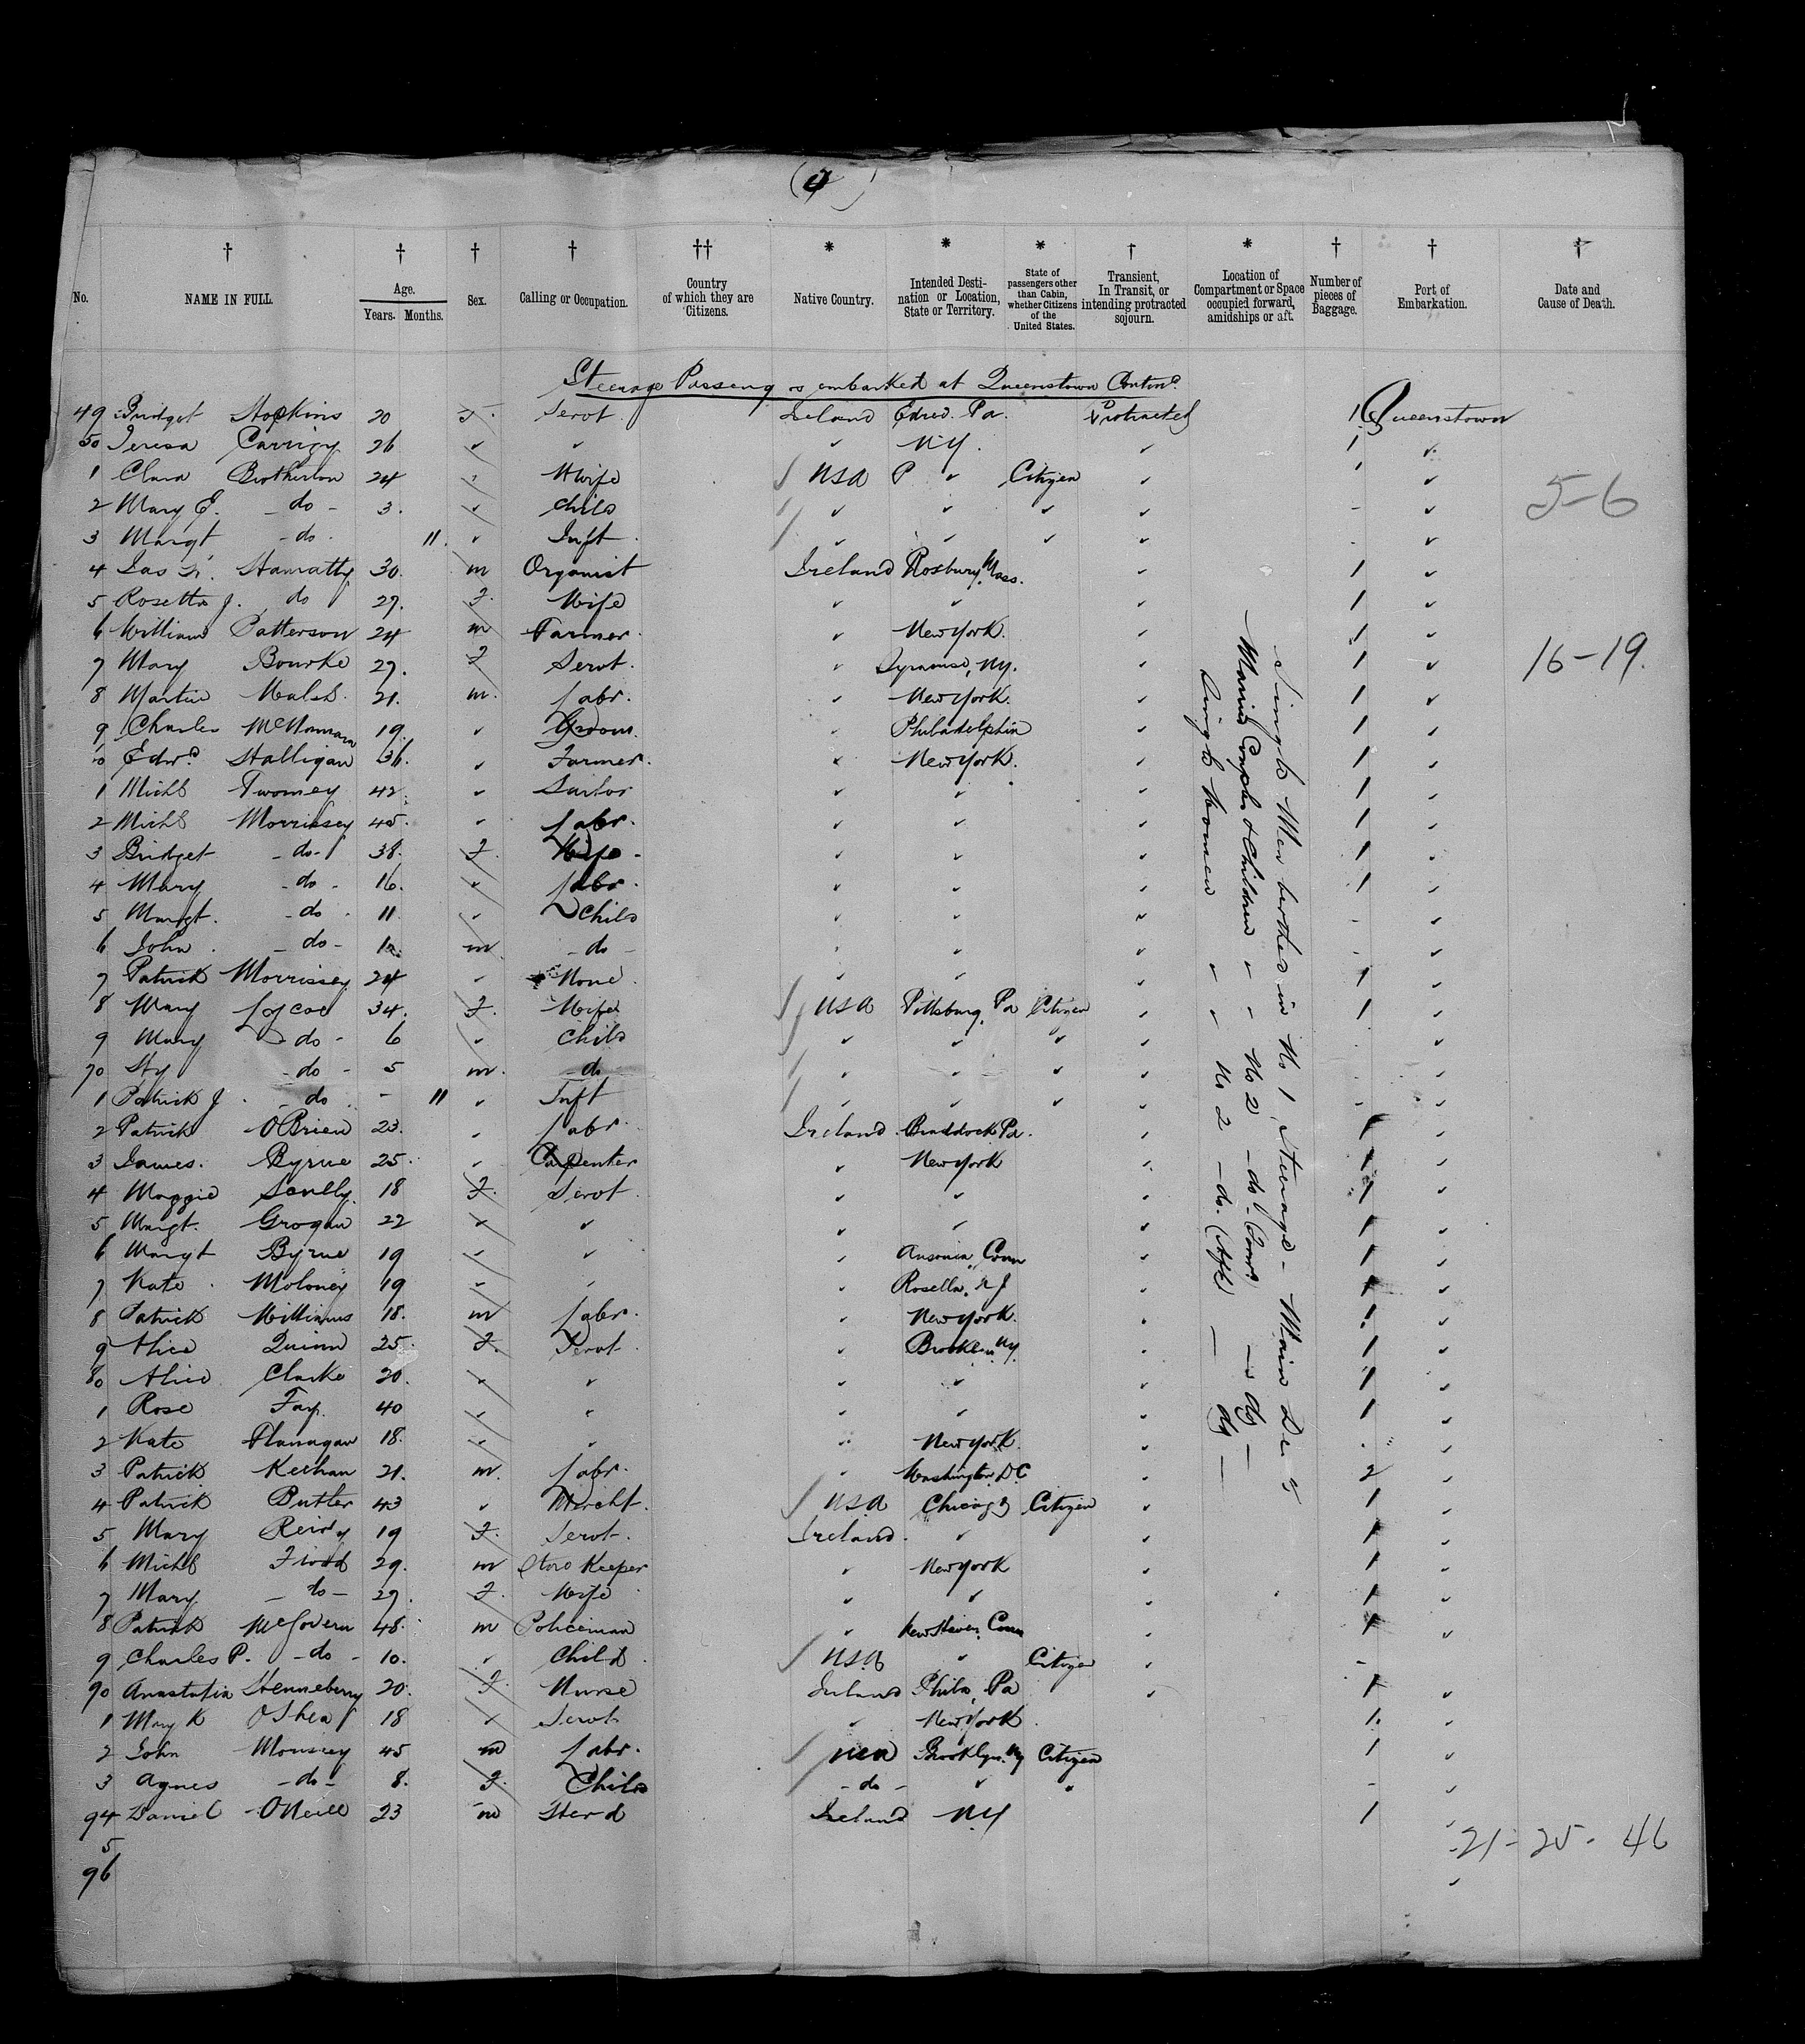 (4)
No. NAME IN FULL. Age. Years. Months. Sex. Calling or Occupation. Country of which they are Citizens. Native Country. Intended Destination or Location, State or Territory. State of passengers other than Cabin, whether Citizens of the United States. Transient, In Transit, or intending protracted sojourn. Location of Compartment or Space occupied forward, amidships or aft. Number of pieces of Baggage. Port of Embarkation. Date and Cause of Death.
Steerage Passengrs embarked at Queenstown Contind
49 Bridget Hopkins 20 F. Servt. Ireland Pa. Protracted 1 Queenstown
50 Teresa Carrigy 26 " " " N.Y. " 1 "
1 Clara Brotherton 24 " Wife USA " Citizen " 1 "
2 Mary E. - do - 3. " Child " " " " - "
3 Margt - do - 11. " Inft " " " " - "
4 Jas Hanratty 30. m Organist Ireland Roxbury, Mass. " 1 "
5 Rosetta J. do 27. F. Wife " " " 1 "
6 William Patterson 24 m Farmer. " New York. " 1 "
7 Mary Bourke 27. F Servt. " Syracuse, NY. " 1 "
8 Martin Walsh. 21. m. Labr. " New York. " 1 "
9 Charles McNamara 19. " Groom. " Philadelphia " 1 "
60 Edwd. Halligan 36. " Farmer. " New York. " 1 "
1 Michl Twomey 42. " Sailor " " " 1 "
2 Michl Morrissey 45. " Labr. " " " 1 "
3 Bridget - do - 38. F. Wife - " " " 1 "
4 Mary - do - 16. " Labr. " " " 1 "
5 Margt. - do - 11. " Child " " " - "
6 John - do - m. - do - " " " - "
7 Patrick Morrissey 24 " None. " " " 1 "
8 Mary 34. F. Wife USA Pittsburg, Pa Citizen " 1 "
9 Mary - do - 6 " Child " " " " "
70 Hy - do - 5 m. - do " " " " "
1 Patrick J. - do - - 11 " Inft " " " " - "
2 Patrick O'Brien 23. " Labr. Ireland. Braddock Pa. " 1 "
3 James. Byrne 25. " Carpenter " New York " 1 "
4 Maggie Scully. 18 F. Servt. " " " 1 "
5 Margt. Grogan 22 " " " " " 1 "
6 Margt Byrne 19 " " " Ansonia, Conn " 1 "
7 Kate Moloney 19 " " " Rosella, N J " 1 "
8 Patrick Williams 18. m Labr. " New York. " 1. "
9 Alice Quinn 25. F. Servt. " Brooklin NY. " 1 "
80 Alice Clarke 20. " " " " " 1 "
1 Rose Fay. 40 " " " " " 1 "
2 Kate Flanagan 18. " " " New York. " "
3 Patrick Keehan 21. m. Labr. " Washington DC " 2 "
4 Patrick Butler 43 " Mercht. USA Chicago Citizen " 1 "
5 Mary Reidy 19 F. Servt. Ireland. " " 1 "
6 Michl Flood 29. m Store Keeper " New York " 1 "
7 Mary - do - 27. F. Wife " " " 1 "
8 Patrick McGovern 48. m Policeman " New Haven, Conn " 1 "
9 Charles P. - do - 10. " Child. USA " Citizen " -
90 Anastatia Henneberry 20. F. Nurse Ireland Phila, Pa " 1 "
1 Mary K O'Shea 18 " Servt " New York. 1. "
2 John 45 m Labr. USA Brooklyn, NY Citizen 1 "
3 Agnes - do - 8. F. Child - do - " " - "
94 Daniel O'Neill 23 m Ireland N.Y 1 "
5
96 "
Single Men berthed in No 1 Steerage - Main Deck
Married Couples & Children " " No 2 - do - - do -
Single Women " " No 2 - do. (Aft) - do -
5-6
16-19.
21-25-46